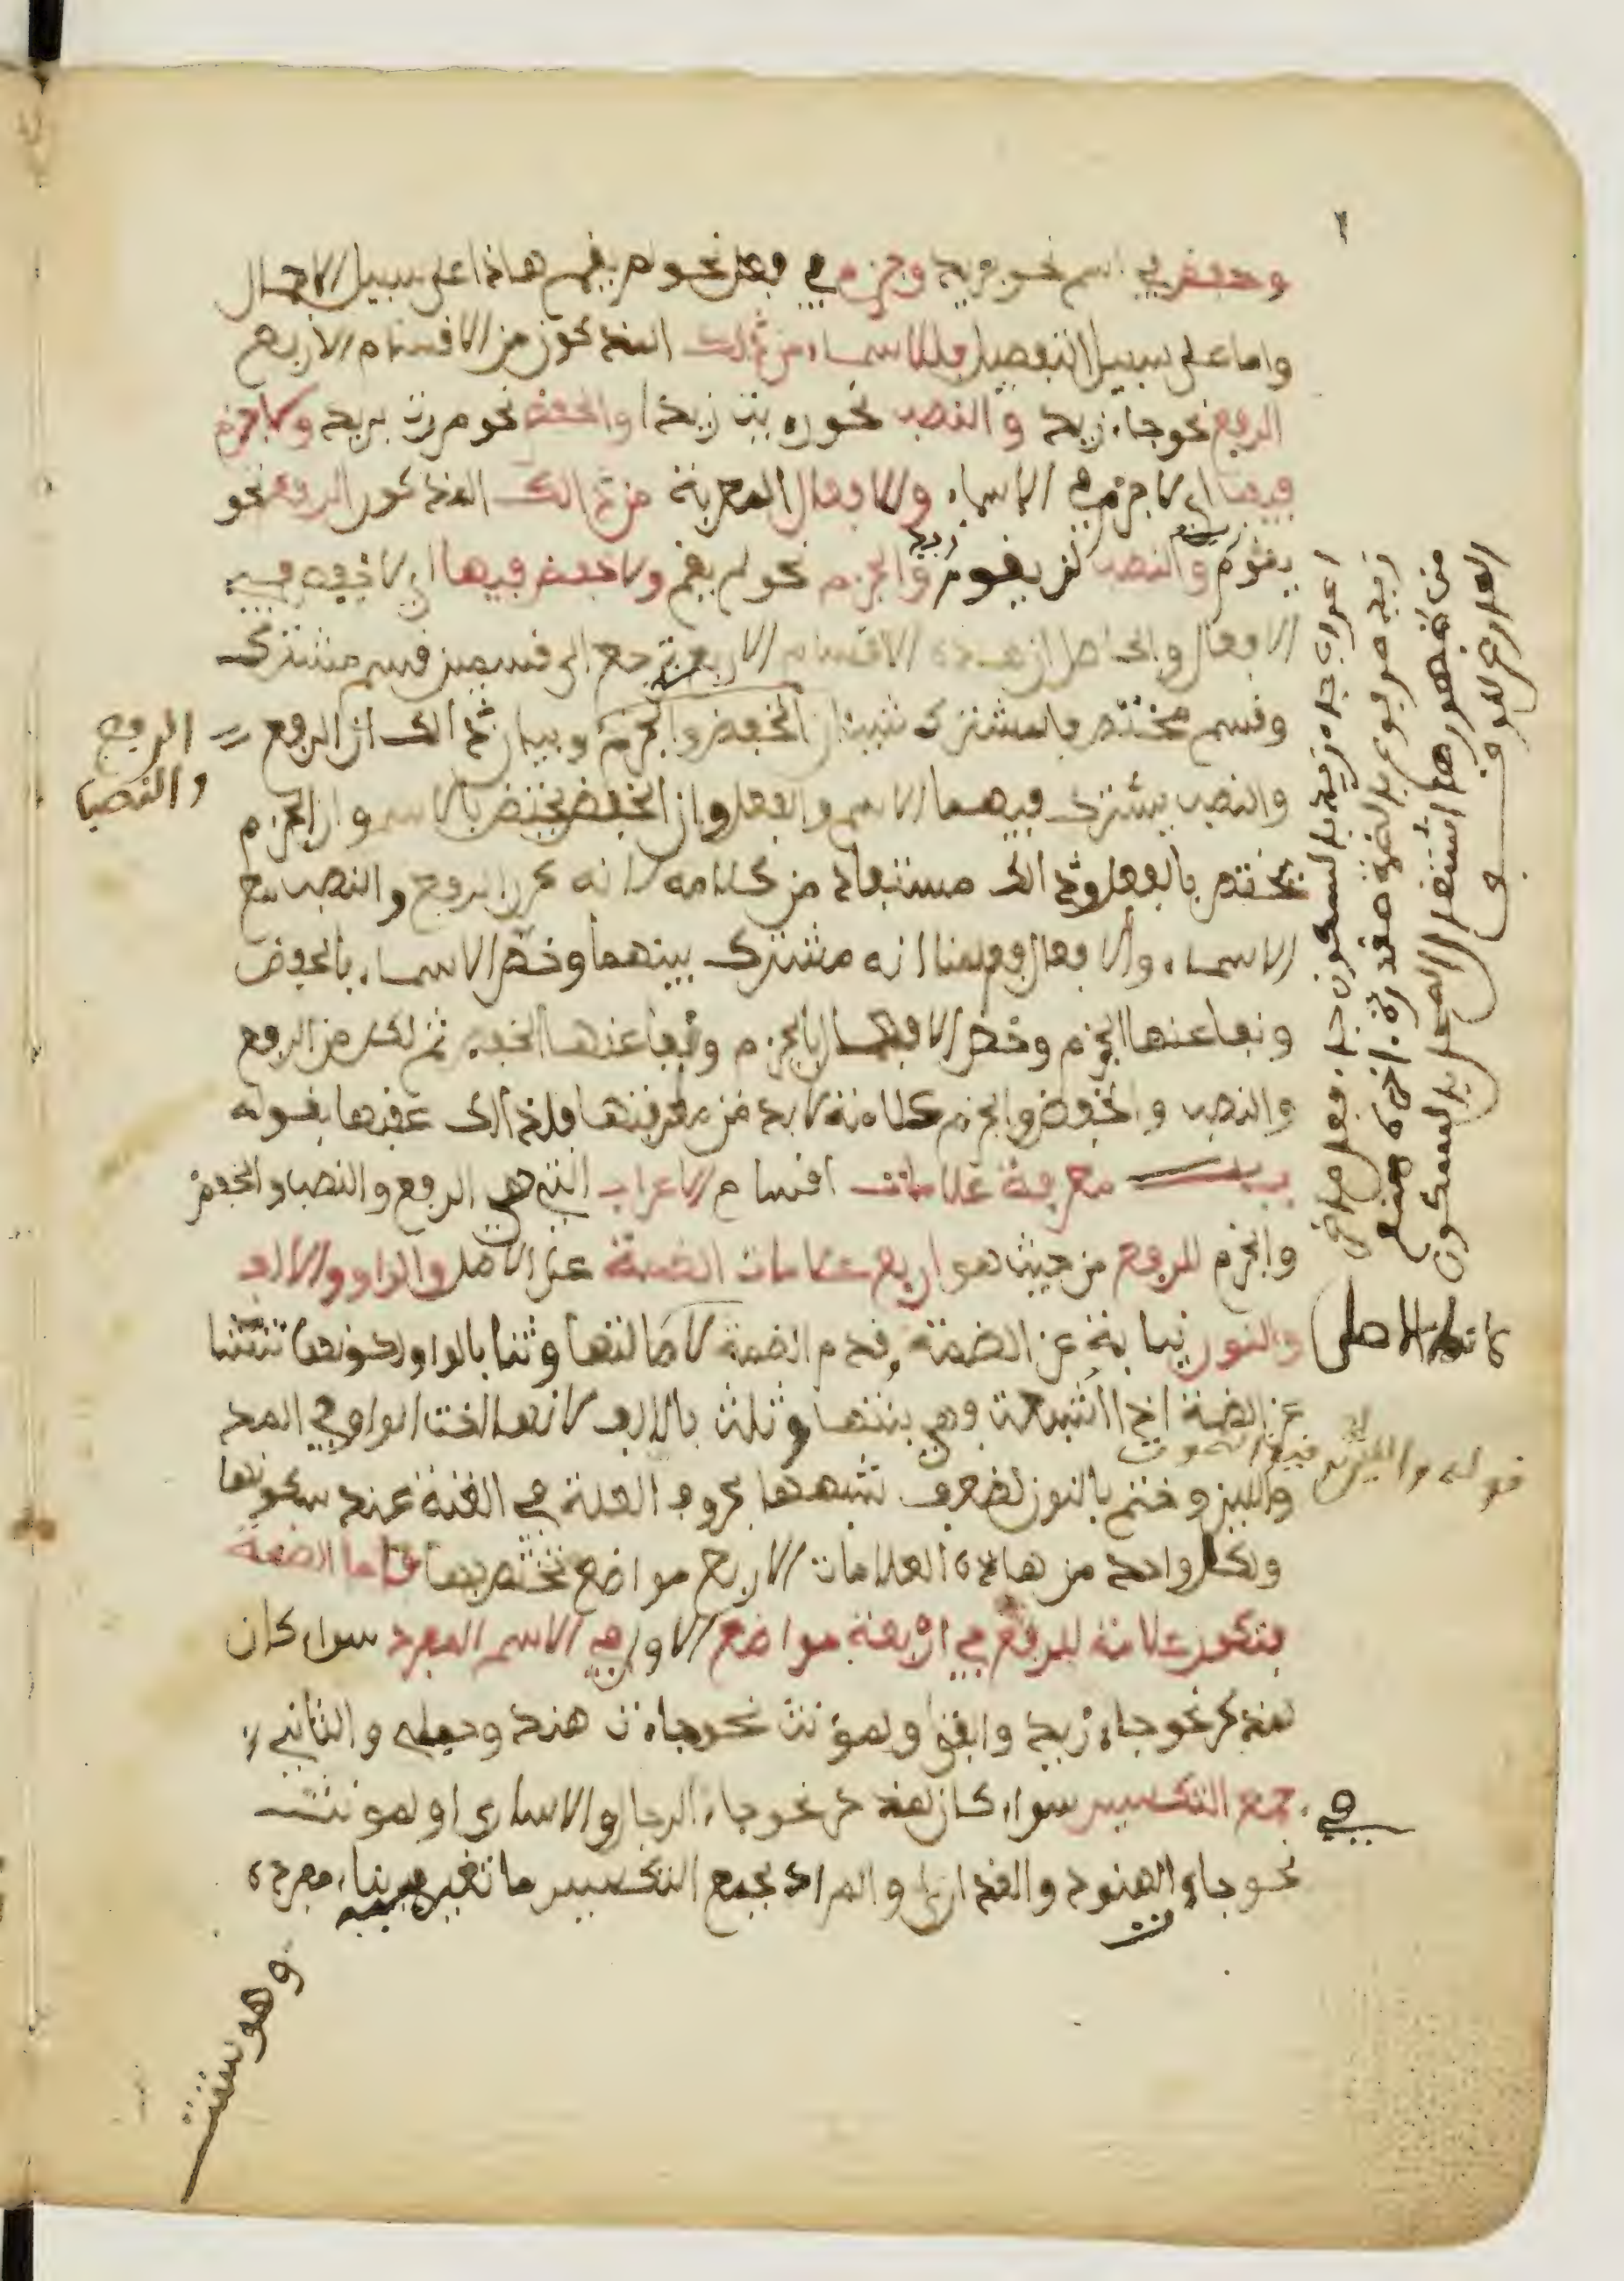 وخفض في اسم نحو بزيد وجزم في فعل نحو لم يقم هاذا على سبيل الاجمال
واما على سبيل التفصيل فللاسماء من ذلك المذكور من الاقسام الاربع
الرفع نحو جاء زيد والنصب نحو رءيت زيدا والخفض نحو مررت بزيد ولا جزم
فيها اي لا جزم في الاسماء وللافعال المعربة من ذالك المذكور الرفع نحو
يقوم والنصب لن يقوم والجزم نحو لم يقم ولا خفض فيها اي لا خفض في
الافعال والحاصل ان هذه الاقسام الاربعة ترجع الى قسمين قسم مشترك
وقسم مختص فالمشترك شيئان الخفض والجزم وبيان ذالك ان الرفع
والنصب يشترك فيهما الاسم والفعل وان الخفض يختص بالاسم وان الجزم
يختص بالفعل وذالك مستفاد من كلامه لانه كرر الرفع والنصب مع
الاسماء والافعال فعلمنا انه مشترك بينهما وخص الاسماء بالخفض
ونفا عنها الجزم وخص الافعال بالجزم ونفا عنها الخفض ثم لكل من الرفع
والنصب والخفض والجزم علامة لابد من معرفتها فلذالك عقبها بقوله
باب معرفة علامات اقسام الاعراب التي هي الرفع والنصب والخفض
والجزم للرفع من حيث هو اربع علامات الضمة على الاصل والواو والالف
والنون نيابة عن الضمة وقدم الضمة لاصالتها وثنا بالواو لكونها تنشا
عن الضمة اذا اشبعت فهي بنتها وثلث بالالف لانها اخت الواو في المد
واللين وختم بالنون لضعف شبهها بحروف العلة في الغنة عند سكونها
ولكل واحد من هاذه العلامات الاربع مواضع تختص بها فاما الضمة
فتكون علامة للرفع في اربعة مواضع الاول في الاسم المفرد سواء كان
لمذكر نحو جاء زيد والفتى او لمؤنث نحو جاءت هند وحبلى والثاني
في جمع التكسير سواء كان لمذكر نحو جاء الرجال والاسارى او لمونث
نحو جاء الهنود والعذارى والمراد بجمع التكسير ما تغير فيه بناء مفرده
وهو ستة
الرفع
والنصب
اعراب جاء زيد بالسكون جاء فعل ماض
زيد مرفوع بالضمة مقدرة اخره منع
من ظهورها اشتغال المحل بالسكون
العارض للوقف